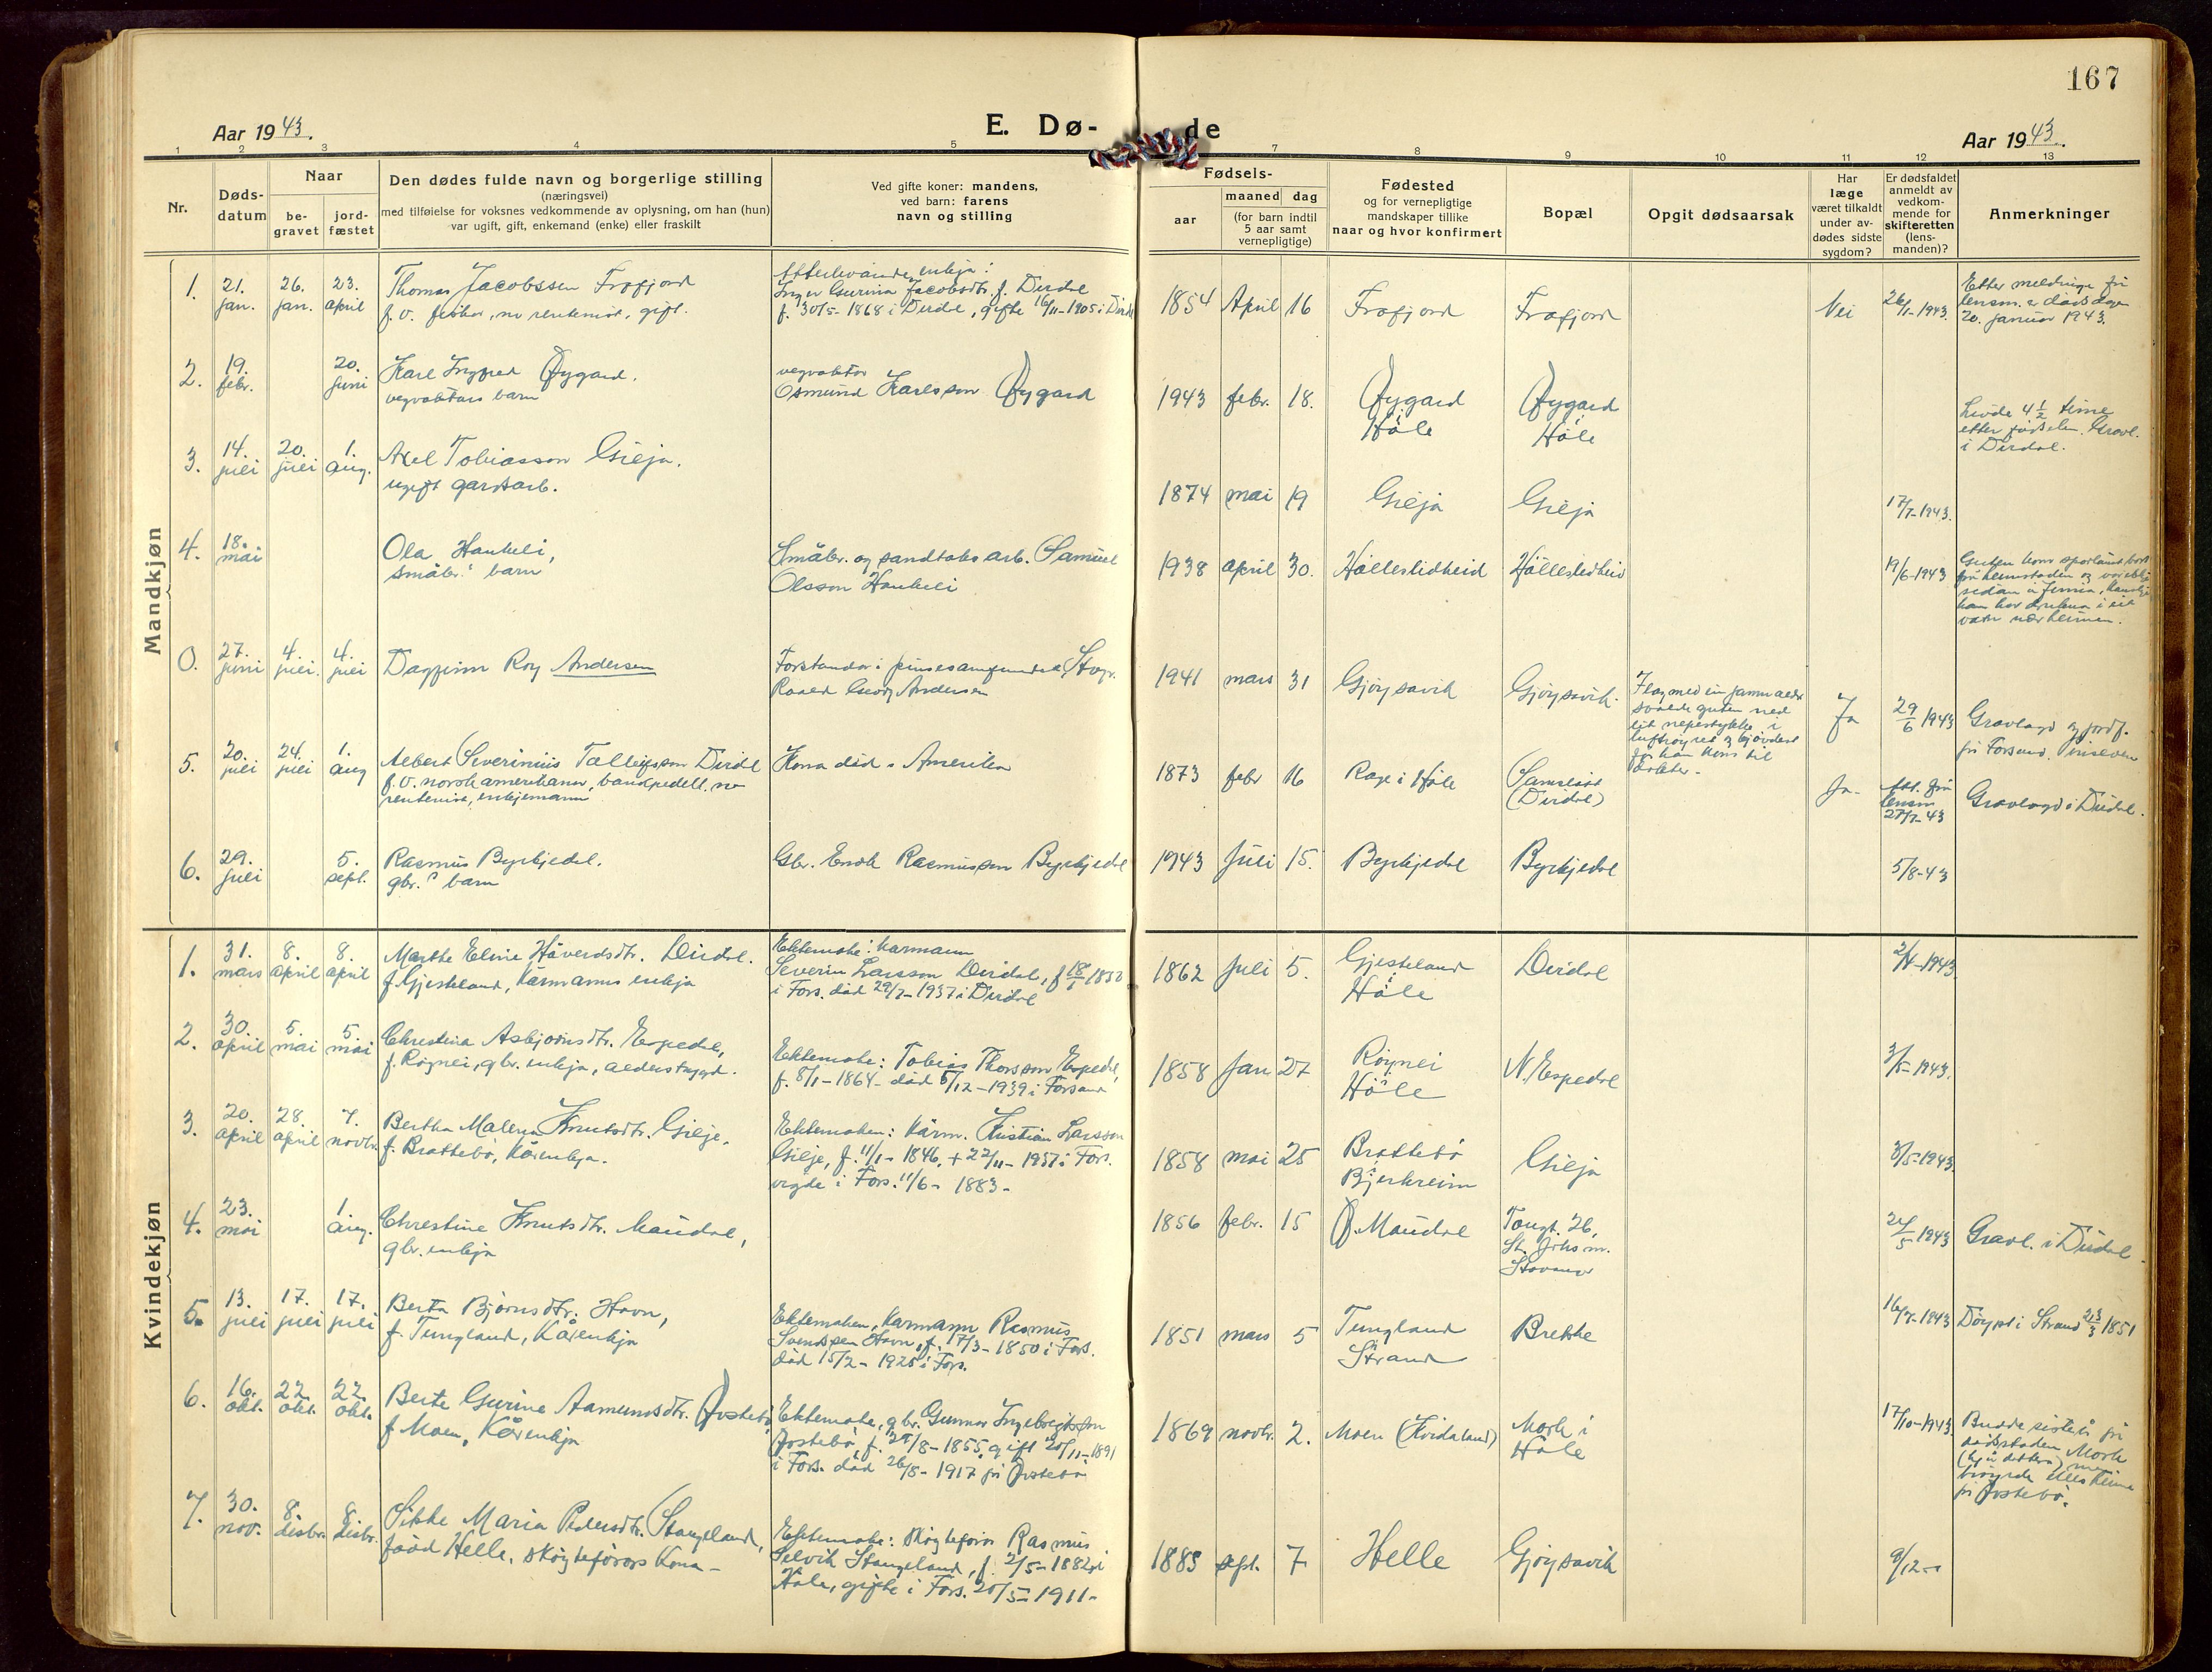 167
Aar 1943.
E. Dø- de
Aar 1943.
1 2 3 4 5 7 8 9 10 11 12 13
Nr.
Døds-
datum
Naar
be-
gravet
jord-
fæstet
Den dødes fulde navn og borgerlige stilling
(næringsvei)
med tilføielse for voksnes vedkommende av oplysning, om han (hun)
var ugift, gift, enkemand (enke) eller fraskilt
Ved gifte koner: mandens,
ved barn: farens
navn og stilling
Fødsels-
aar
maaned dag
(for barn indtil
5 aar samt
vernepligtige)
Fødested
og for vernepligtige
mandskaper tillike
naar og hvor konfirmert
Bopæl
Opgit dødsaarsak
Har
læge
været tilkaldt
under av-
dødes sidste
sygdom?
Er dødsfaldet
anmeldt av
vedkom-
mende for
skifteretten
(lens-
manden)?
Anmerkninger
Mandkjøn
1. 21. jan. 26. jan. 23. april
Thomas Jacobssen Frafjord
f. v. fiskar, no rentenist, gift.
Attlevande enkja:
Inger Gurina Jacobsdtr. f. Dirdal
f. 30/5-1868 i Dirdal, gifte 16/11-1905 i Dirdal
1854 April 16 Frafjord Frafjord Nei 26/1-1943.
Etter meldinga frå
lensm. er dødsdagen
20. januar 1943.
2. 19. febr. 20. juni
Karl Ingfred Øygard.
vegvaktars barn
vegvaktar
Osmund Karlsson Øygard
1943 febr. 18. Øygard
Høle
Øygard
Høle
Livde 4 1/2 time
etter fødselen. Gravl.
i Dirdal.
3. 14. juli 20. juli 1. aug.
Axel Tobiasson Gilja.
ugift gardsarb.
1874 mai 19 Gilja Gilja 17/7-1943.
4. 18. mai
Ola Haukeli,
småbr.s barn
Småbr. og sandtaksarb. Samuel
Olsson Haukeli
1938 april 30. Hålleslidheid Hålleslidheid 19/6-1943
Guten kom sporlaust bort
frå heimstaden og vart ikkje
sidan å finna, kanskje
han har drukna i eit
vatn nær heimen.
0. 27. juni 4. juli. 4. juli
Dagfinn Roy Andersen
Forstandar i pinsesamfundet, Stvgr.
Roald Georg Andersen
1941 mars 31 Gjøysavik Gjøysavik.
Ja 29/6 1943
Gravlagd og jordf.
frå Forsand. Pinseven
5. 20. juli 24. juli 1. aug
Albert Severinius Tolleifsson Dirdal
f. v. norskamerikanar, bankpedell, no
rentenist, enkjemann
Kona død i Amerika
1873 febr 16 Rage i Høle
(Dirdal)
Ja.
lensm
27/7-43
Gravlagd i Dirdal.
6. 29. juli 5. sept.
Rasmus Byrkjedal.
gbr.s barn
Gbr. Enok Rasmusson Byrkjedal
1943 Juli 15. Byrkjedal Byrkjedal 5/8-43
Kvindekjøn
1. 31. mars 8. april 8. april
Marthe Eline Håvardsdtr. Dirdal.
f. Gjesteland, Kårmanns enkja
Ektemake: karmann
Severin Larsson Dirdal, f 18/1 1858
i Fors. død 29/7-1937 i Dirdal
1862 Juli 5. Gjesteland
i
Høle
Dirdal 2/4-1943
2. 30. april 5. mai 5 mai
Christina Asbjørnsdtr. Espedal,
f. Røgnei, gbr. enkja, alderstrygd.
Ektemake: Tobias Thorsson Espedal,
f. 8/1-1864- død 5/12-1939 i Forsand
1858 Jan 27 Røynei
Høle
N. Espedal 3/5-1943.
3. 20. april 28. april 7. novbr.
Bertha Malena Knutsdtr. Gilje.
f. Brattebø, Kårenkja.
Ektemaken: Kårm. Kristian Larsson
Gilje, f. 11/1-1846, + 22/11-1937 i Fors.
vigde i Fors. 11/6-1883-
1858 mai 25 Brattebø
i
Bjerkreim
Gilja 3/5-1943
4. 23. mai 1. aug.
Christine Knutsdtr. Maudal,
gbr. enkja
1856 febr. 15 Ø. Maudal
Tougt. 26,
St. Johs m.
Stavanger
24/5 1943 Gravl. i Dirdal.
5. 13. juli 17. juli 17. juli
Berta Bjørnsdtr. Havn,
f. Tungland, Kårenkja
Ektemaken, Karmann Rasmus
Svendsen Havn, f. 17/3-1850 i Fors.
død 15/2-1925 i Fors.
1851 mars 5 Tungland
i
Strand
Brekke 16/7-1943 Døypt i Strand 23/3 1851
6. 16. okt. 22. okt. 22. okt.
Berte Gurine Aamundsdtr. Østebø,
f Moen, Kårenkja
Ektemake, gbr. Gunnar Ingebrigtson
Østebø, f. 25/8-1855, gift 20/11-1891
i Fors. død 26/8-1917 frå Østebø
1869 novbr. 2. Moen (Kvidaland) Mork i
Høle
17/10-1943.
Budde sist å frå
dødsstaden Mork
frå Østebø.
7. 30. nov. 8. desbr. 8. desbr.
Sikke Maria Pedersdtr. Stangeland,
fødd Helle, skøyteførars Kona-
Ektemake: skøyteførar Rasmus
Selvik Stangeland, f. 2/5-1882 i
Høle, gifte i Fors. 20/5-1911-
1885 sept. 7 Helle Gjøysavik 9/12-